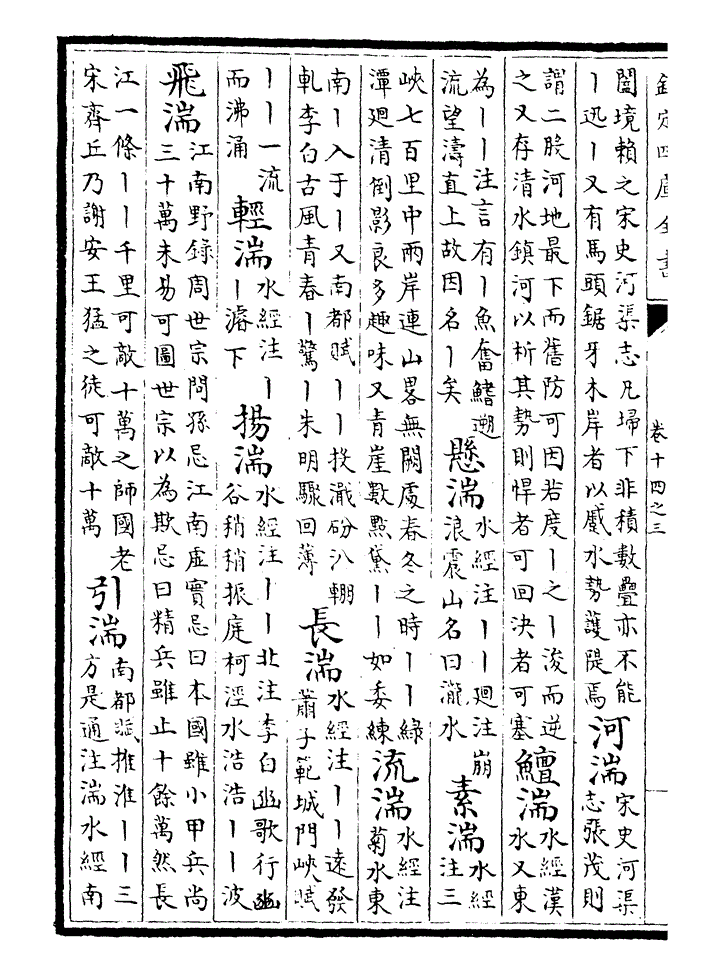 欽定四庫全書
卷十四之三
闔境賴之宋史河渠志凡埽下非積數疊亦不能
丨迅丨又有馬頭鋸牙木岸者以蹙水勢護隄焉
河湍
宋史河渠
志張茂則
謂二股河地最下而舊防可因若度丨之丨浚而逆
之又存清水鎮河以析其勢則悍者可回決者可塞
鱣湍
水經漢
水又東
為丨丨注言有丨魚奮鰭遡
流望濤直上故因名丨矣
懸湍
水經注丨丨廻注崩
浪震山名曰瀧水
素湍
水經
注三
峽七百里中兩岸連山畧無闕處春冬之時丨丨綠
潭廻清倒影良多趣味又青崖數點黛丨丨如委練
流湍
水經注
菊水東
南丨入于丨又南都賦丨丨投濈砏汃輣
軋李白古風青春丨驚丨朱明驟回薄
長湍
水經注丨丨遠發
蕭子範城門峽賦
丨丨一流
而沸涌
輕湍
水經注丨
丨濬下
揚湍
水經注丨丨北注李白幽歌行幽
谷稍稍振庭柯涇水浩浩丨丨波
飛湍
江南野錄周世宗問孫忌江南虛實忌曰本國雖小甲兵尚
三十萬未易可圖世宗以為欺忌曰精兵雖止十餘萬然長
江一條丨丨千里可敵十萬之師國老
宋齊丘乃謝安王猛之徒可敵十萬
引湍
南都賦推淮丨丨三
方是通注湍水經南